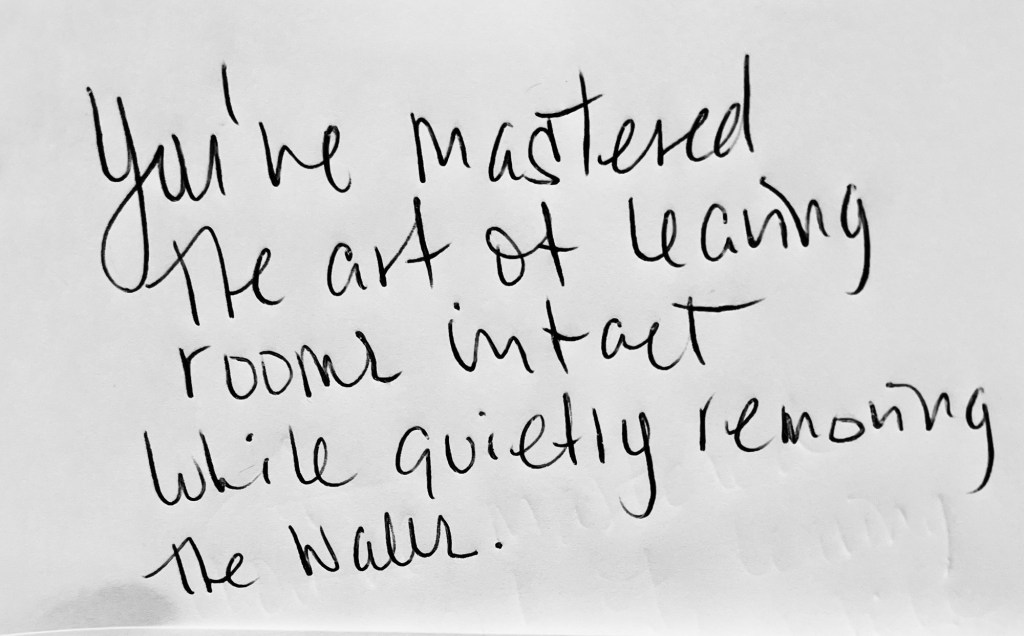 You've mastered
the art of leaving
rooms intact
while quietly removing
the walls.